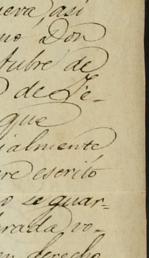 eva, asi
no Don
tubre de
de Fe-
que
ialmente
re escrito
o se guar-
rada vo-
en derecho